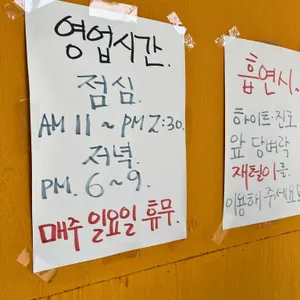 영업시간.
점심.
AM 11 ~ PM 2:30.
저녁.
PM. 6~9.
매주 일요일 휴무.
흡연시.
하이트·진로
앞 담벼락
재털이를.
이용해 주세요